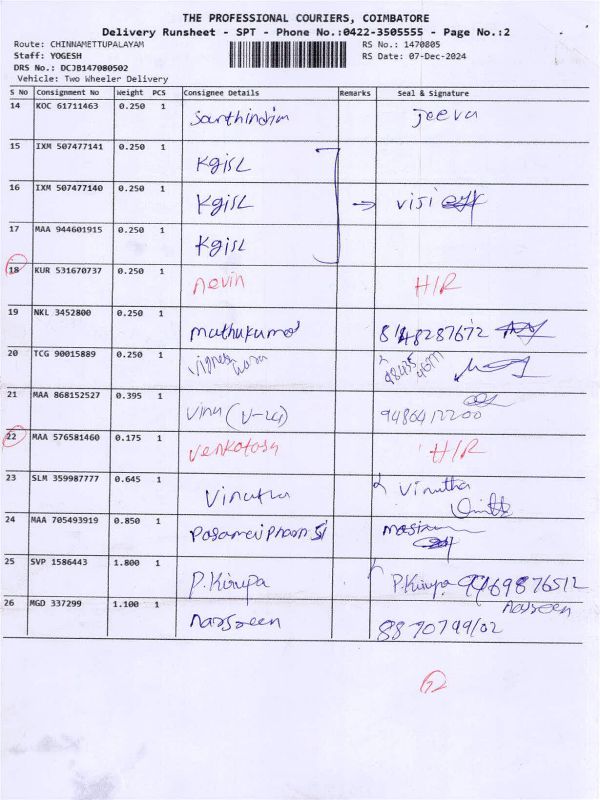 THE PROFESSIONAL COURIERS, COIMBATORE
Delivery Runsheet - SPT - Phone No.:0422-3505555 - Page No.:2
Route: CHINNAMETTUPALAYAM RS No.: 1470805
Staff: YOGESH RS Date: 07-Dec-2024
DRS No.: DCJB147080502
Vehicle: Two Wheeler Delivery
S No Consignment No Weight PCS Consignee Details Remarks Seal & Signature
14 KOC 61711463 0.250 1 Jeeva
15 IXM 507477141 0.250 1 Kgisl
16 IXM 507477140 0.250 1 Kgisl → visi
17 MAA 944601915 0.250 1 Kgisl
18 KUR 531670737 0.250 1 nevin H/R
19 NKL 3452800 0.250 1
20 TCG 90015889 0.250 1
21 MAA 868152527 0.395 1 vinu 9486412200
22 MAA 576581460 0.175 1 venkatasa H/R
23 SLM 359987777 0.645 1 Vinutha Vinutha
24 MAA 705493919 0.850 1
25 SVP 1586443 1.800 1 P.Kirupa P.Kirupa
26 MGD 337299 1.100 1 nasreen nasreen